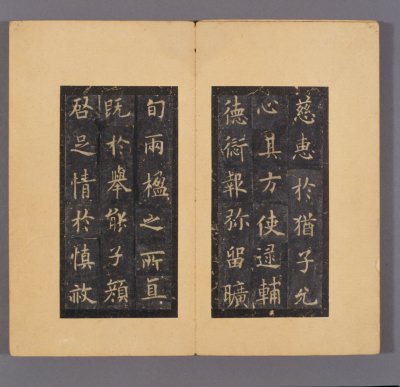 慈惠於猶子允
心其方使逯輔
德衍報弥留曠
旬兩楹之所直
既於舉能子顔
啓足情於慎敀